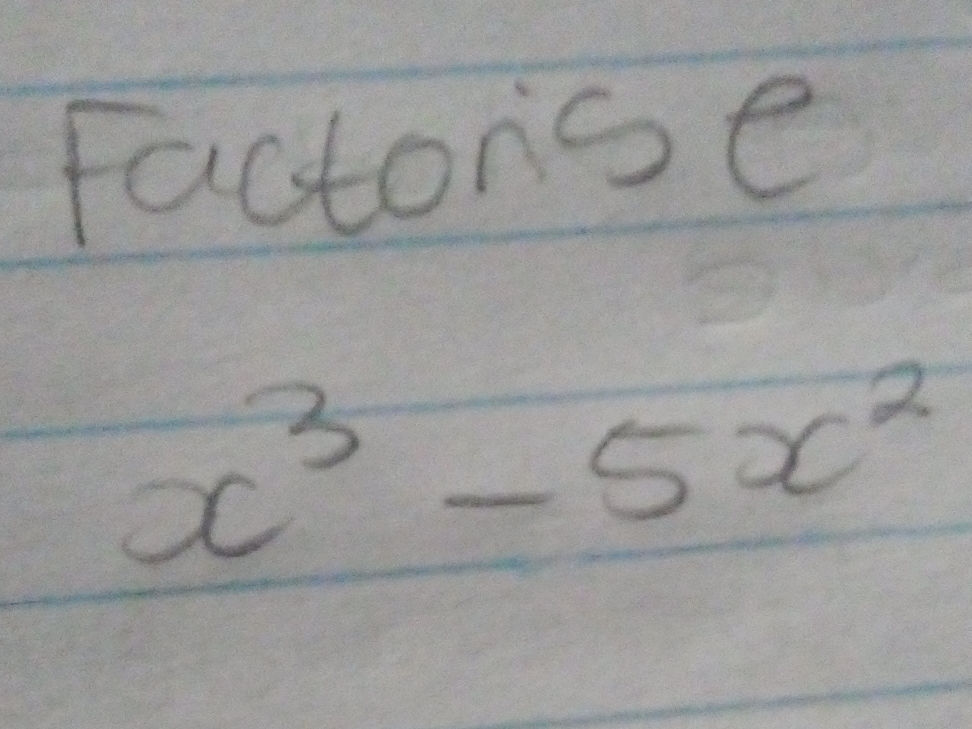 Factorise
x³ - 5x²